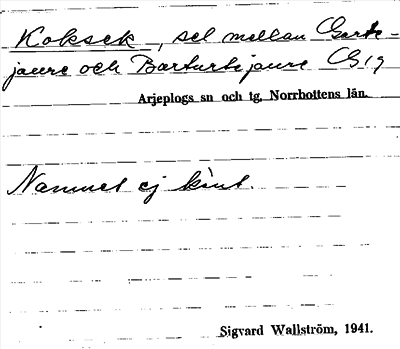 Koksek, sel mellan Gerte-
jaure och Barturtejaure G19
Arjeplogs sn och tg, Norrbottens län.
Namnet ej känt.
Sigvard Wallström, 1941.